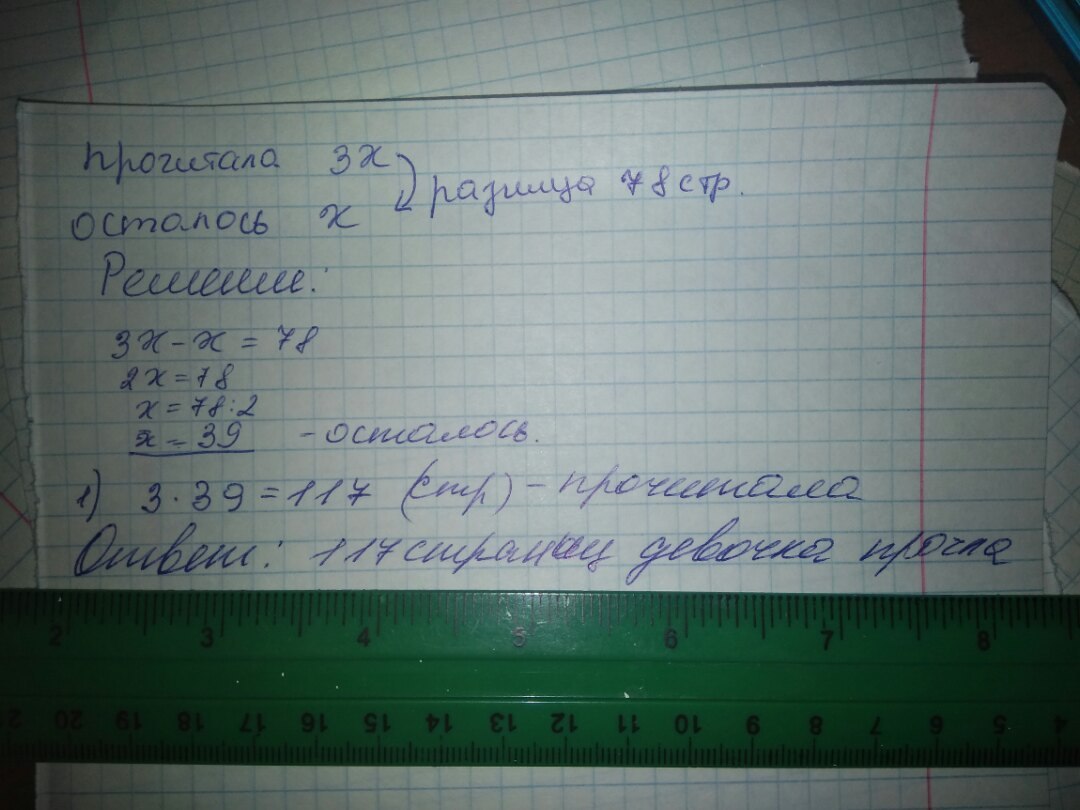 прочитала 3х
разница 78 стр.
осталось х
Решение:
3х - х = 78
2х = 78
х = 78:2
х = 39 - осталось.
1) 3·39 = 117 (стр) - прочитала
Ответ: 117 страниц девочка прочла
2 3 4 5 6 7 8
21 20 19 18 17 16 15 14 13 12 11 10 9 8 7 6 5 4